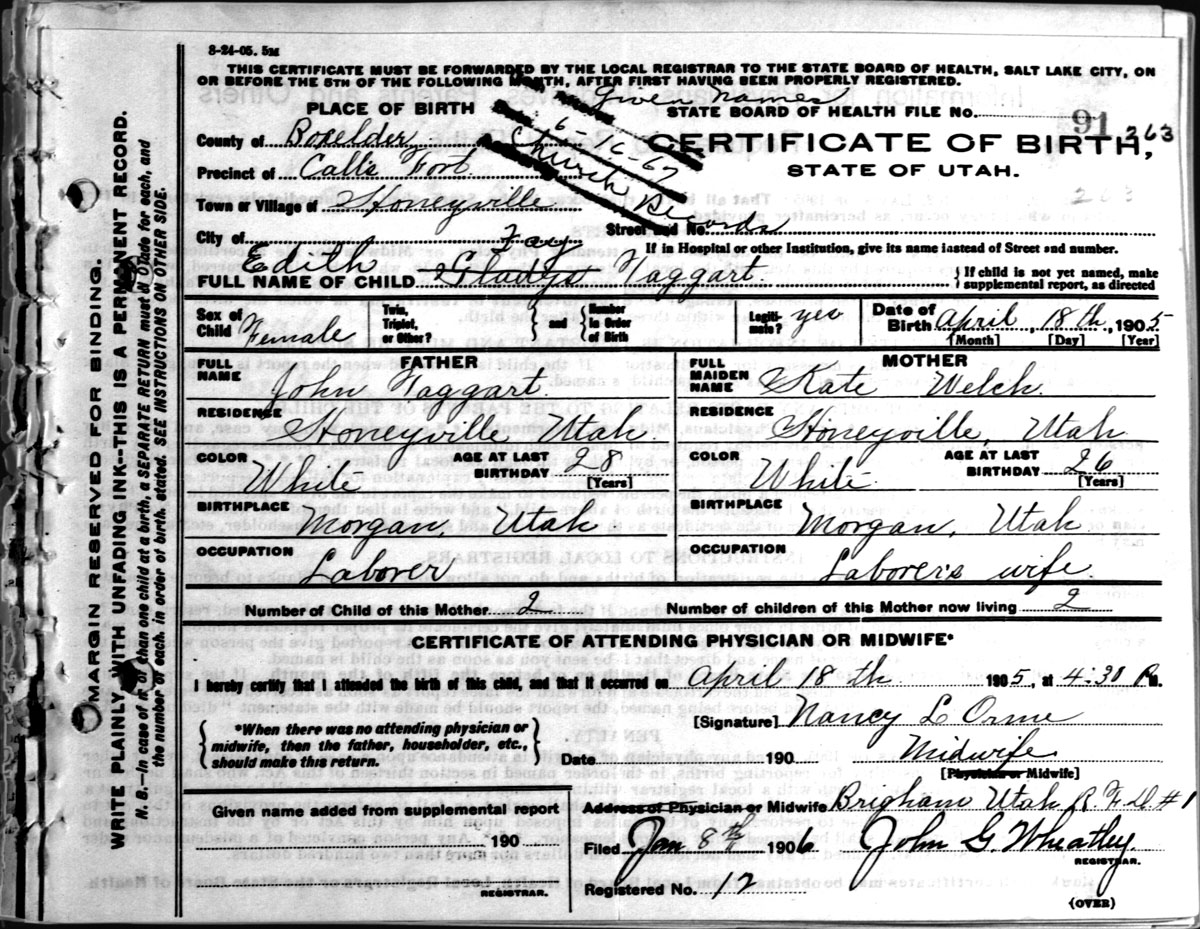 8-24-05. 5M
THIS CERTIFICATE MUST BE FORWARDED BY THE LOCAL REGISTRAR TO THE STATE BOARD OF HEALTH, SALT LAKE CITY, ON
OR BEFORE THE 5TH OF THE FOLLOWING MONTH, AFTER FIRST HAVING BEEN PROPERLY REGISTERED.
Given Names
6-16-67
Church Records
PLACE OF BIRTH
STATE BOARD OF HEALTH FILE No. 91 263
County of Boxelder
CERTIFICATE OF BIRTH,
STATE OF UTAH.
Precinct of Calls Fort
263
Town or Village of Honeyville
Street and No.
City of
If in Hospital or other Institution, give its name instead of Street and number.
Fay
FULL NAME OF CHILD Edith Gladys Taggart
{If child is not yet named, make
supplemental report, as directed
Sex of Child Female
Twin, Triplet, or Other?
} and {
Number in Order of Birth
Legiti-mate? yes
Date of Birth April 18th, 1905
[Month] [Day] [Year]
FATHER
FULL NAME John Taggart.
RESIDENCE Honeyville Utah.
COLOR White
AGE AT LAST BIRTHDAY 28
[Years]
BIRTHPLACE Morgan, Utah
OCCUPATION Laborer
MOTHER
FULL MAIDEN NAME Kate Welch.
RESIDENCE Honeyville, Utah.
COLOR White
AGE AT LAST BIRTHDAY 26
[Years]
BIRTHPLACE Morgan, Utah
OCCUPATION Laborer's wife.
Number of Child of this Mother 2
Number of children of this Mother now living 2
CERTIFICATE OF ATTENDING PHYSICIAN OR MIDWIFE*
I hereby certify that I attended the birth of this child, and that it occurred on April 18th 1905, at 4:30 P M.
{*When there was no attending physician or
midwife, then the father, householder, etc.,
should make this return.}
[Signature] Nancy L Orme
Date 190
Midwife
[Physician or Midwife]
Given name added from supplemental report
190
REGISTRAR.
Address of Physician or Midwife Brigham Utah R. F. D. #1
Filed Jan 8th 1906 John G. Wheatley.
REGISTRAR.
Registered No. 12
(OVER)
MARGIN RESERVED FOR BINDING.
WRITE PLAINLY WITH UNFADING INK--THIS IS A PERMANENT RECORD.
N. B.--In case of more than one child at a birth, a SEPARATE RETURN must be made for each, and
the number of each, in order of birth, stated. SEE INSTRUCTIONS ON OTHER SIDE.